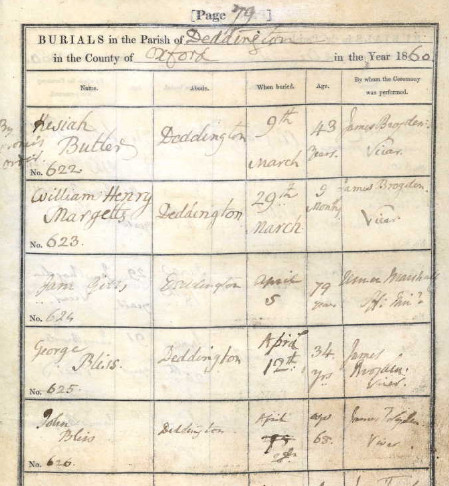 [Page 79]
BURIALS in the Parish of Deddington
in the County of Oxford in the Year 1860
Name. Abode. When buried. Age. By whom the Ceremony was performed.
By
order
Kesiah
Butler
No. 622.
Deddington
9th
March
43
Years.
James Brogden.
Vicar.
William Henry
Margetts
No. 623.
Deddington
29th
March
9
Months
James Brogden.
Vicar.
No. 624
Deddington
April
5
79
years
Marshall
George
Bliss.
No. 625.
Deddington
April
12th.
34.
yrs
James
Brogden.
Vicar.
John
Bliss
No. 626.
Deddington.
April
age
68.
James
Vicar.